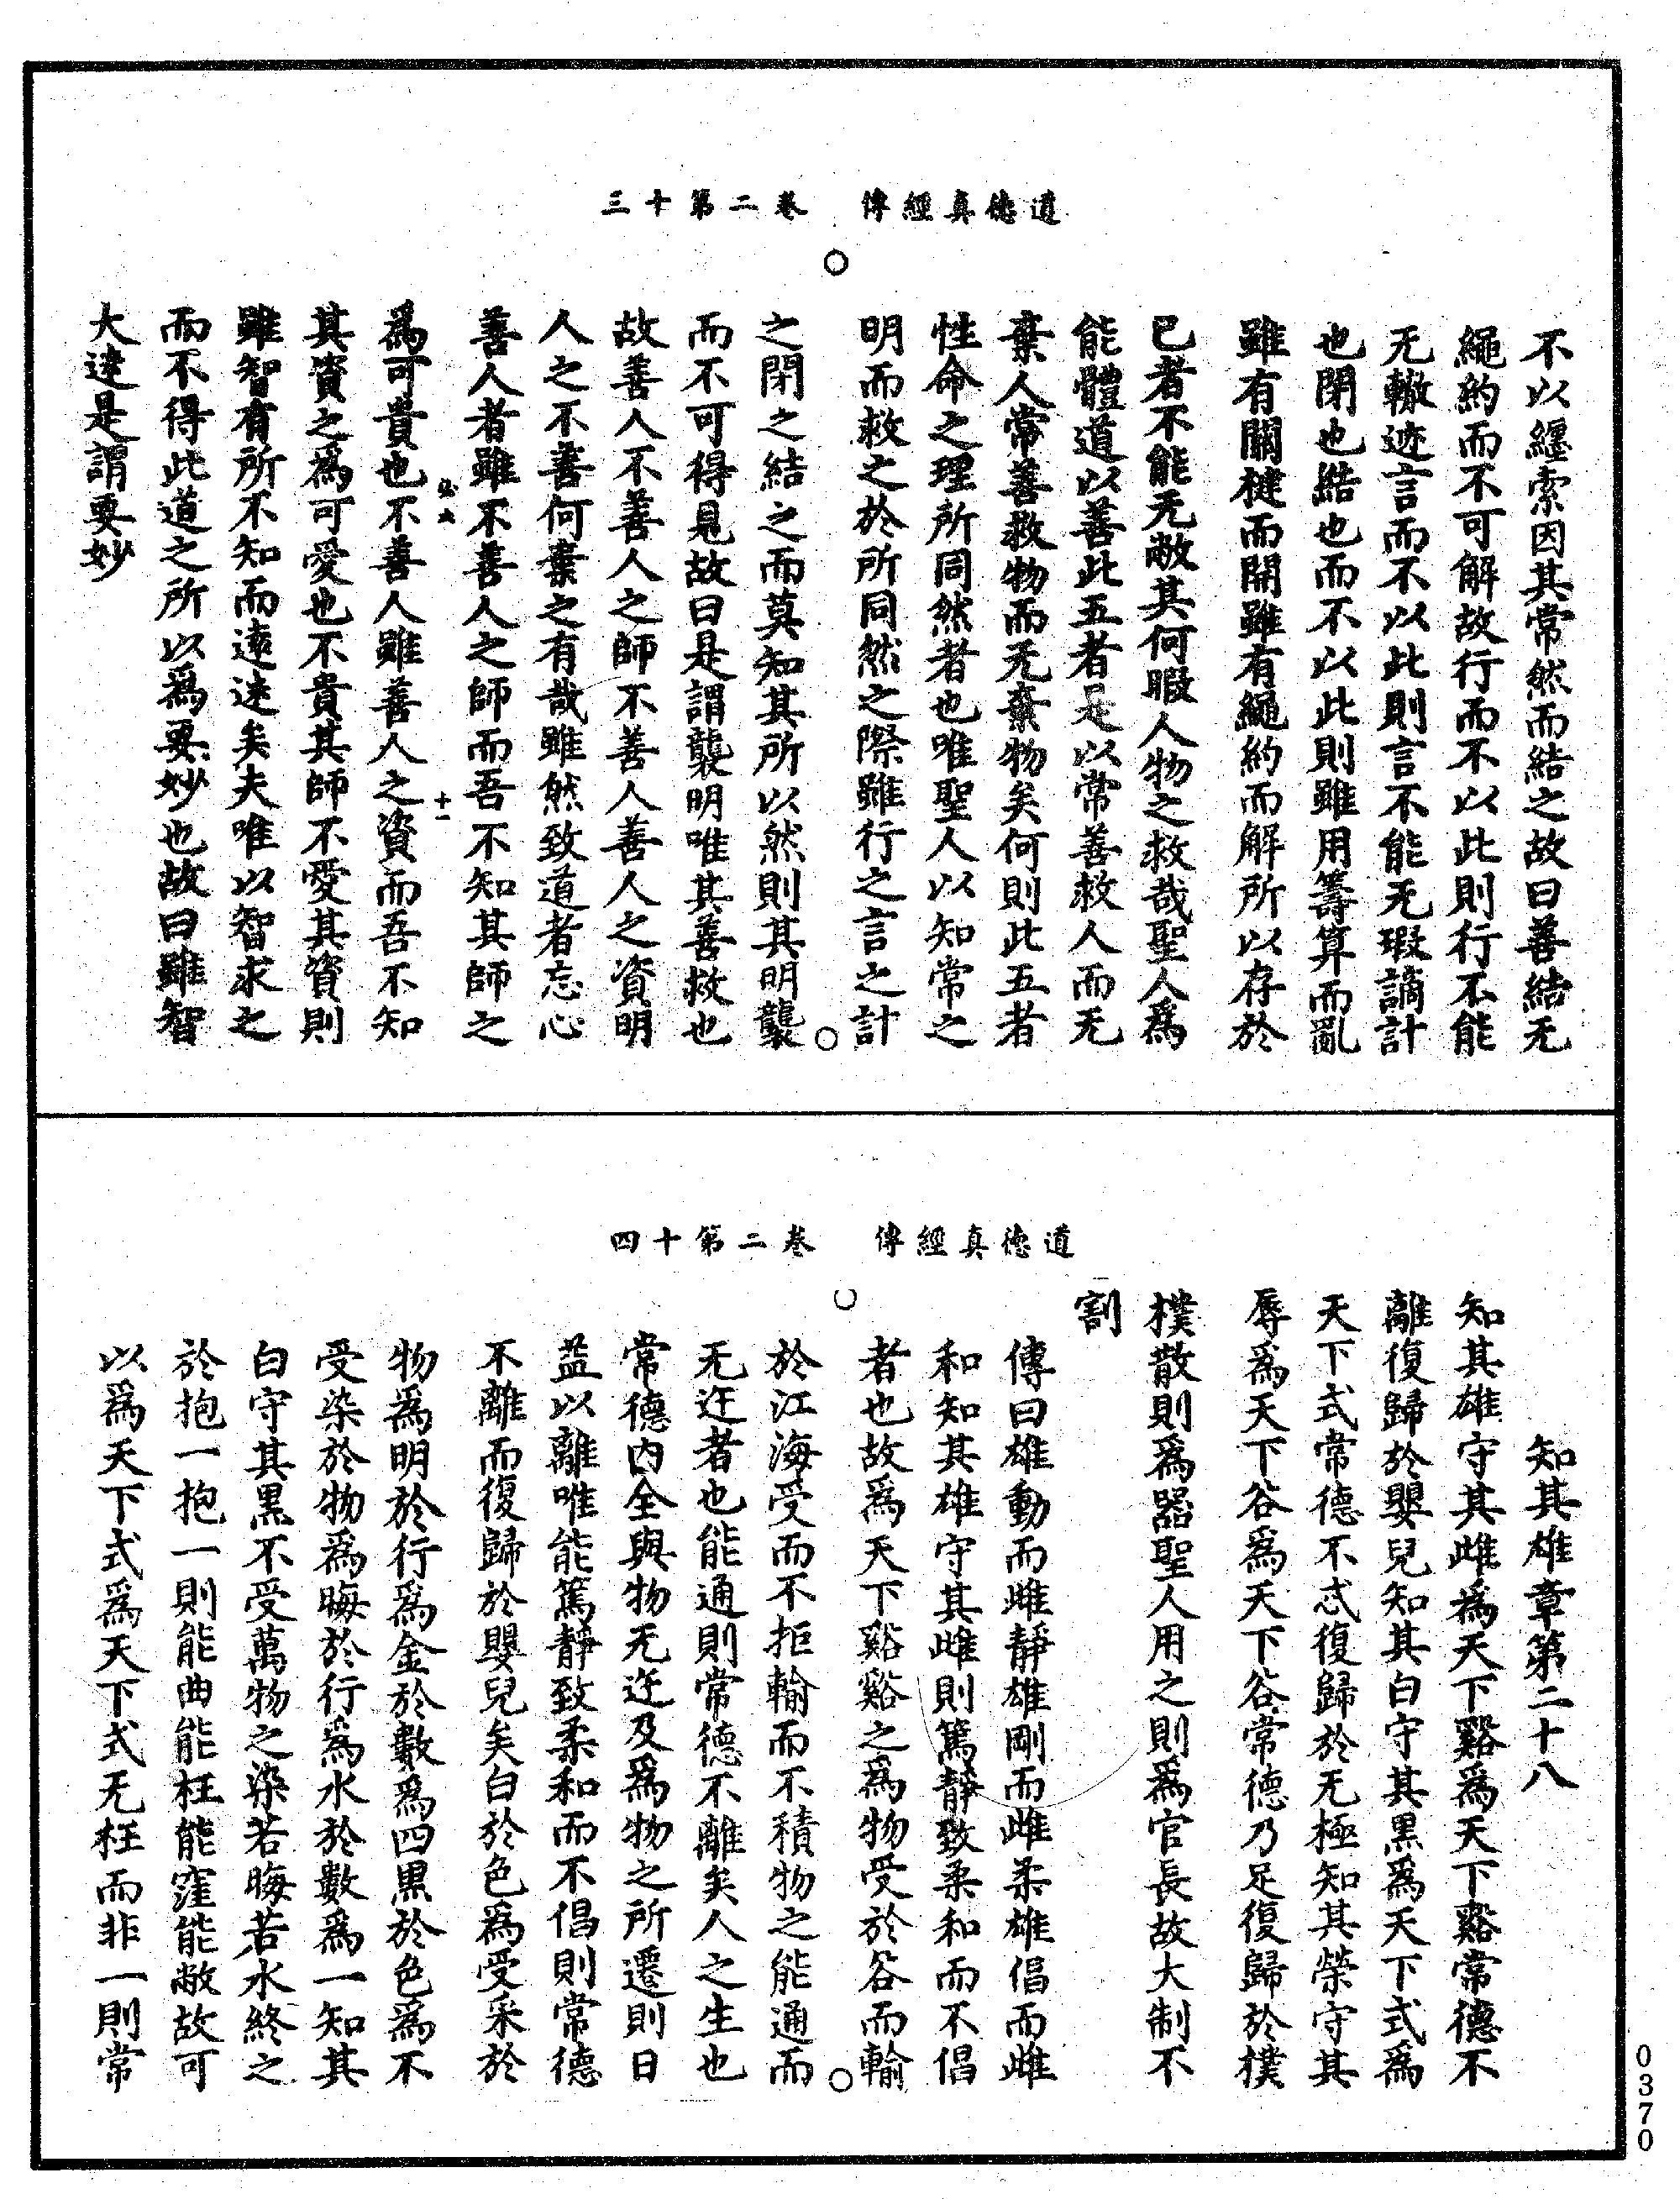 道德真經傳　卷二第十三
不以纆索因其常然而結之故曰善結无
繩約而不可解故行而不以此則行不能
无轍迹言而不以此則言不能无瑕謫計
也閉也結也而不以此則雖用籌算而亂
雖有關楗而開雖有繩約而解所以存於
已者不能无敝其何暇人物之救哉聖人爲
能體道以善此五者是以常善救人而无
棄人常善救物而无棄物矣何則此五者
性命之理所同然者也唯聖人以知常之
明而救之於所同然之際雖行之言之計
之閉之結之而莫知其所以然則其明襲
而不可得見故曰是謂襲明唯其善救也
故善人不善人之師不善人善人之資明
人之不善何棄之有哉雖然致道者忘心
善人者雖不善人之師而吾不知其師之
爲可貴也不善人雖善人之資而吾不知
十一
其資之爲可愛也不貴其師不愛其資則
雖智有所不知而遠迷矣夫唯以智求之
而不得此道之所以爲要妙也故曰雖智
大迷是謂要妙
道德真經傳　卷二第十四
知其雄章第二十八
知其雄守其雌爲天下谿爲天下谿常德不
離復歸於嬰兒知其白守其黒爲天下式爲
天下式常德不忒復歸於无極知其榮守其
辱爲天下谷爲天下谷常德乃足復歸於樸
樸散則爲器聖人用之則爲官長故大制不
割
傳曰雄動而雌靜雄剛而雌柔雄倡而雌
和知其雄守其雌則篤靜致柔和而不倡
者也故爲天下谿谿之爲物受於谷而輸
於江海受而不拒輸而不積物之能通而
无迕者也能通則常德不離矣人之生也
常德内全與物无迕及爲物之所遷則日
益以離唯能篤靜致柔和而不倡則常德
不離而復歸於嬰兒矣白於色爲受采於
物爲明於行爲金於數爲四黒於色爲不
受染於物爲晦於行爲水於數爲一知其
白守其黒不受萬物之染若晦若水終之
於抱一抱一則能曲能枉能窪能敝故可
以爲天下式爲天下式无枉而非一則常
0370